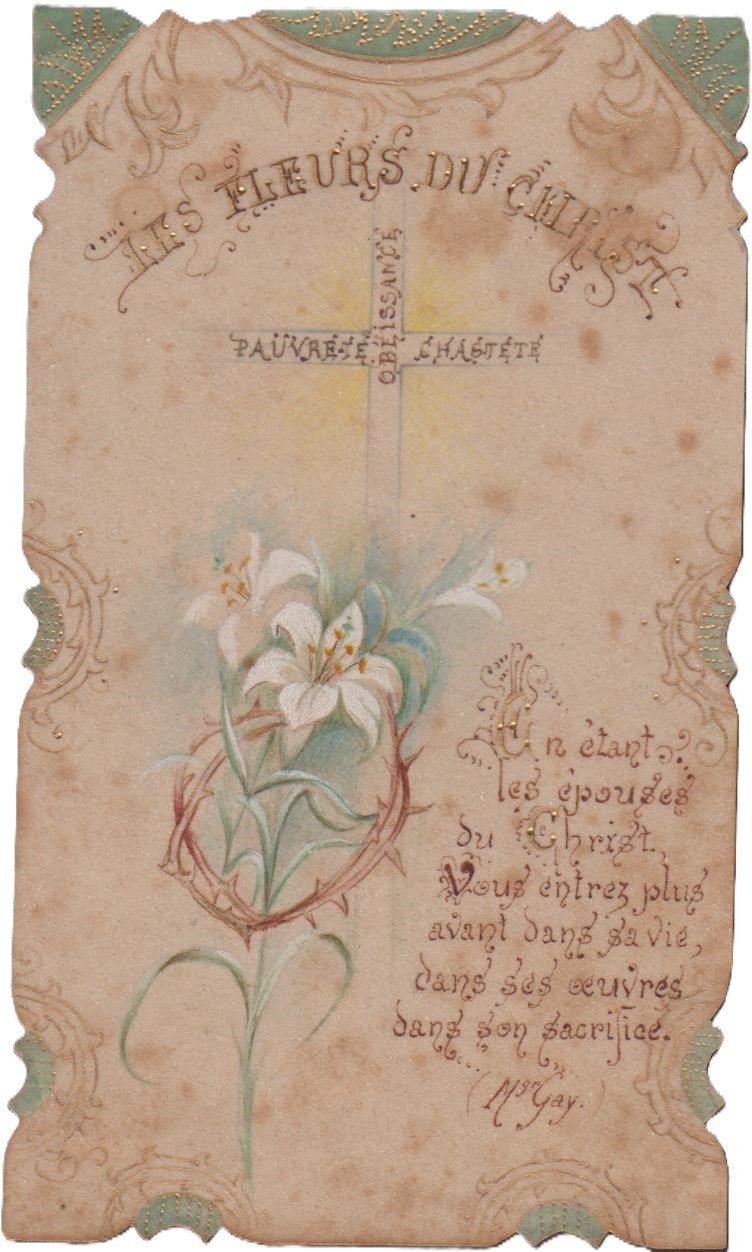 LES FLEURS DU CHRIST
OBEISSANCE
PAUVRETE CHASTETE
En étant
les épouses
du Christ,
Vous entrez plus
avant dans sa vie,
dans ses œuvres
dans son sacrifice.
(Mgr Gay.)